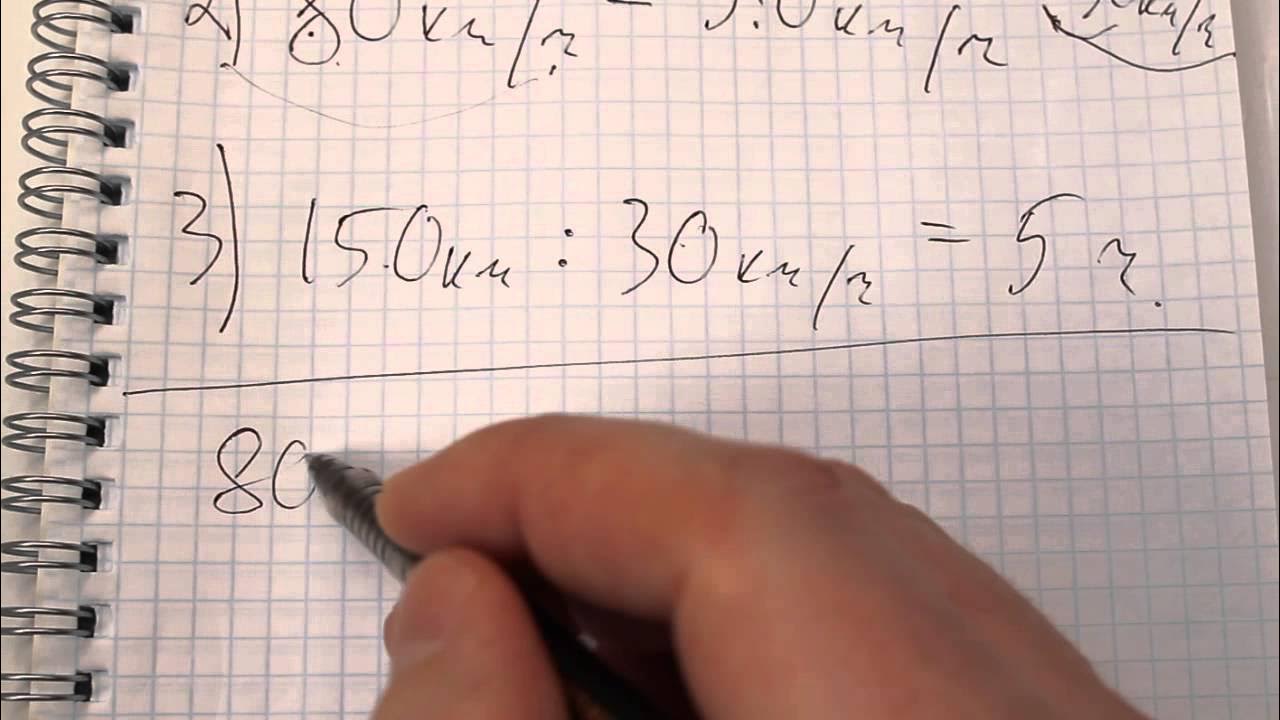 2) 80 км/ч - 50 км/ч
3) 150 км : 30 км/ч = 5 ч.
80